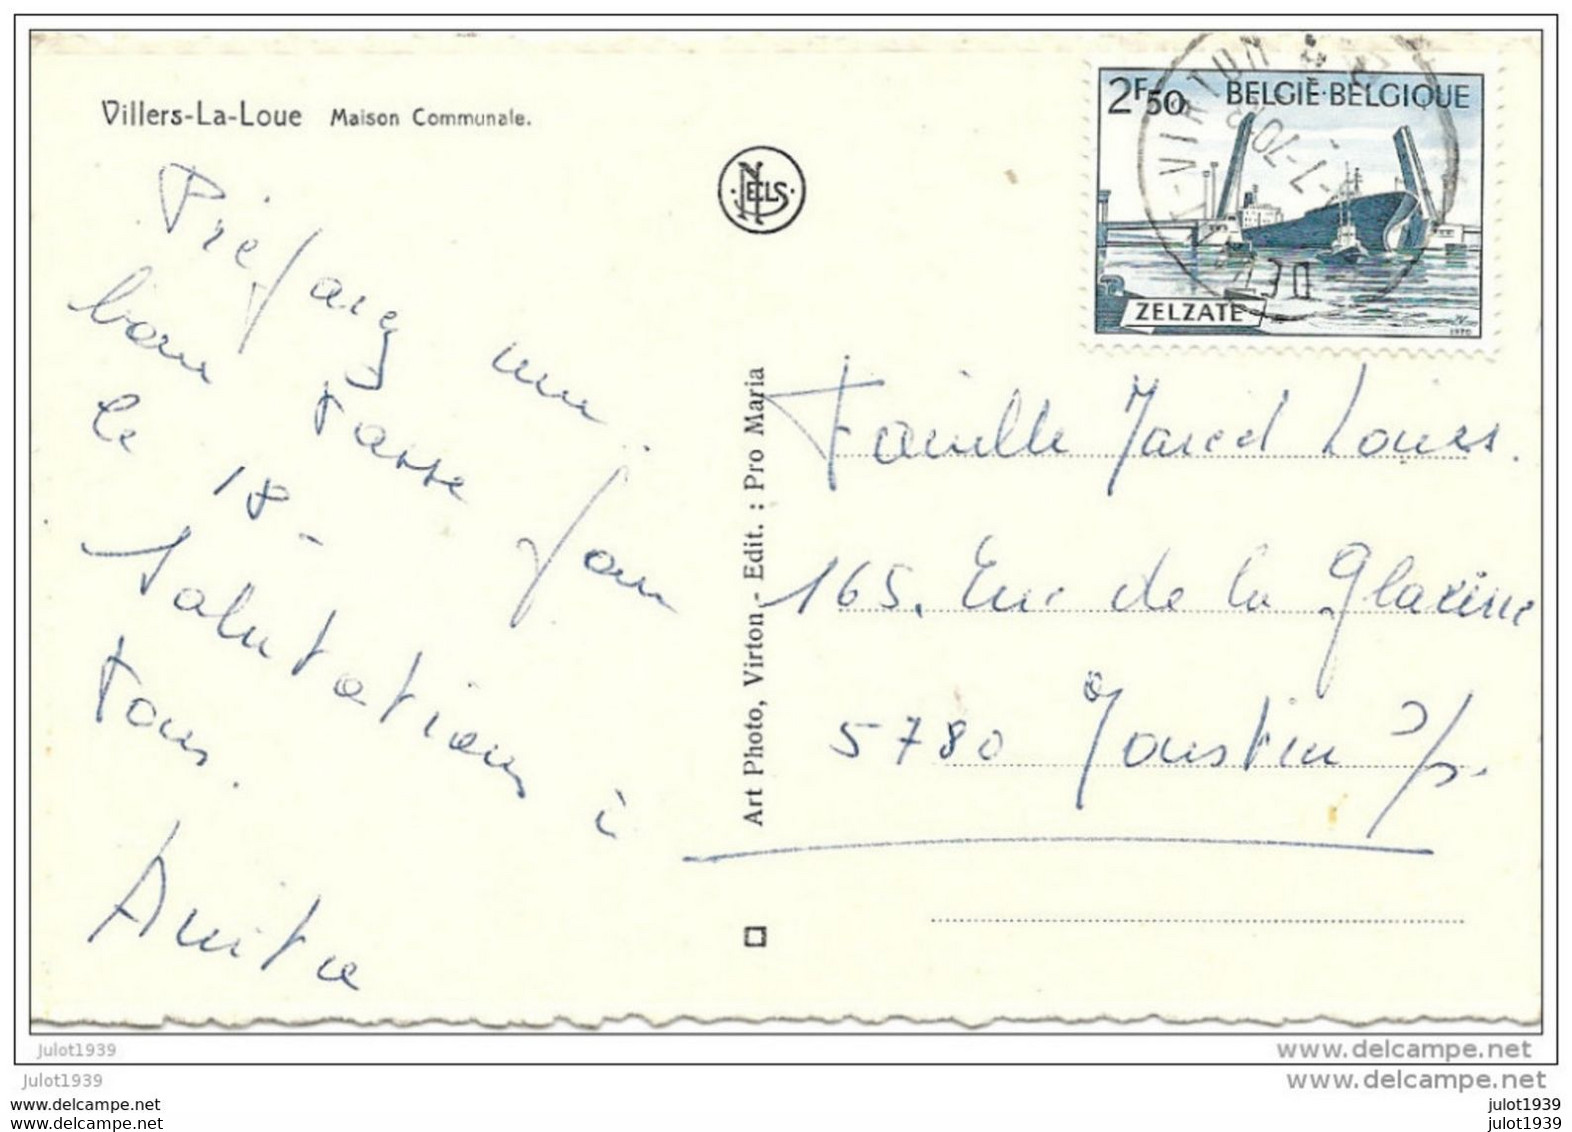 Villers-La-Loue Maison Communale.
NELS
2F50 BELGIË-BELGIQUE
ZELZATE
1970
VIRTON
Préparez une
bonne tasse pour
le 18-
Salutations à
tous.
Anita
Art Photo, Virton - Edit. : Pro Maria
Famille Marcel Louis.
165, Rue de la Glacerie
5780 Moustier s/s.
julot1939
www.delcampe.net
julot1939
www.delcampe.net
julot1939
www.delcampe.net
julot1939
www.delcampe.net
julot1939